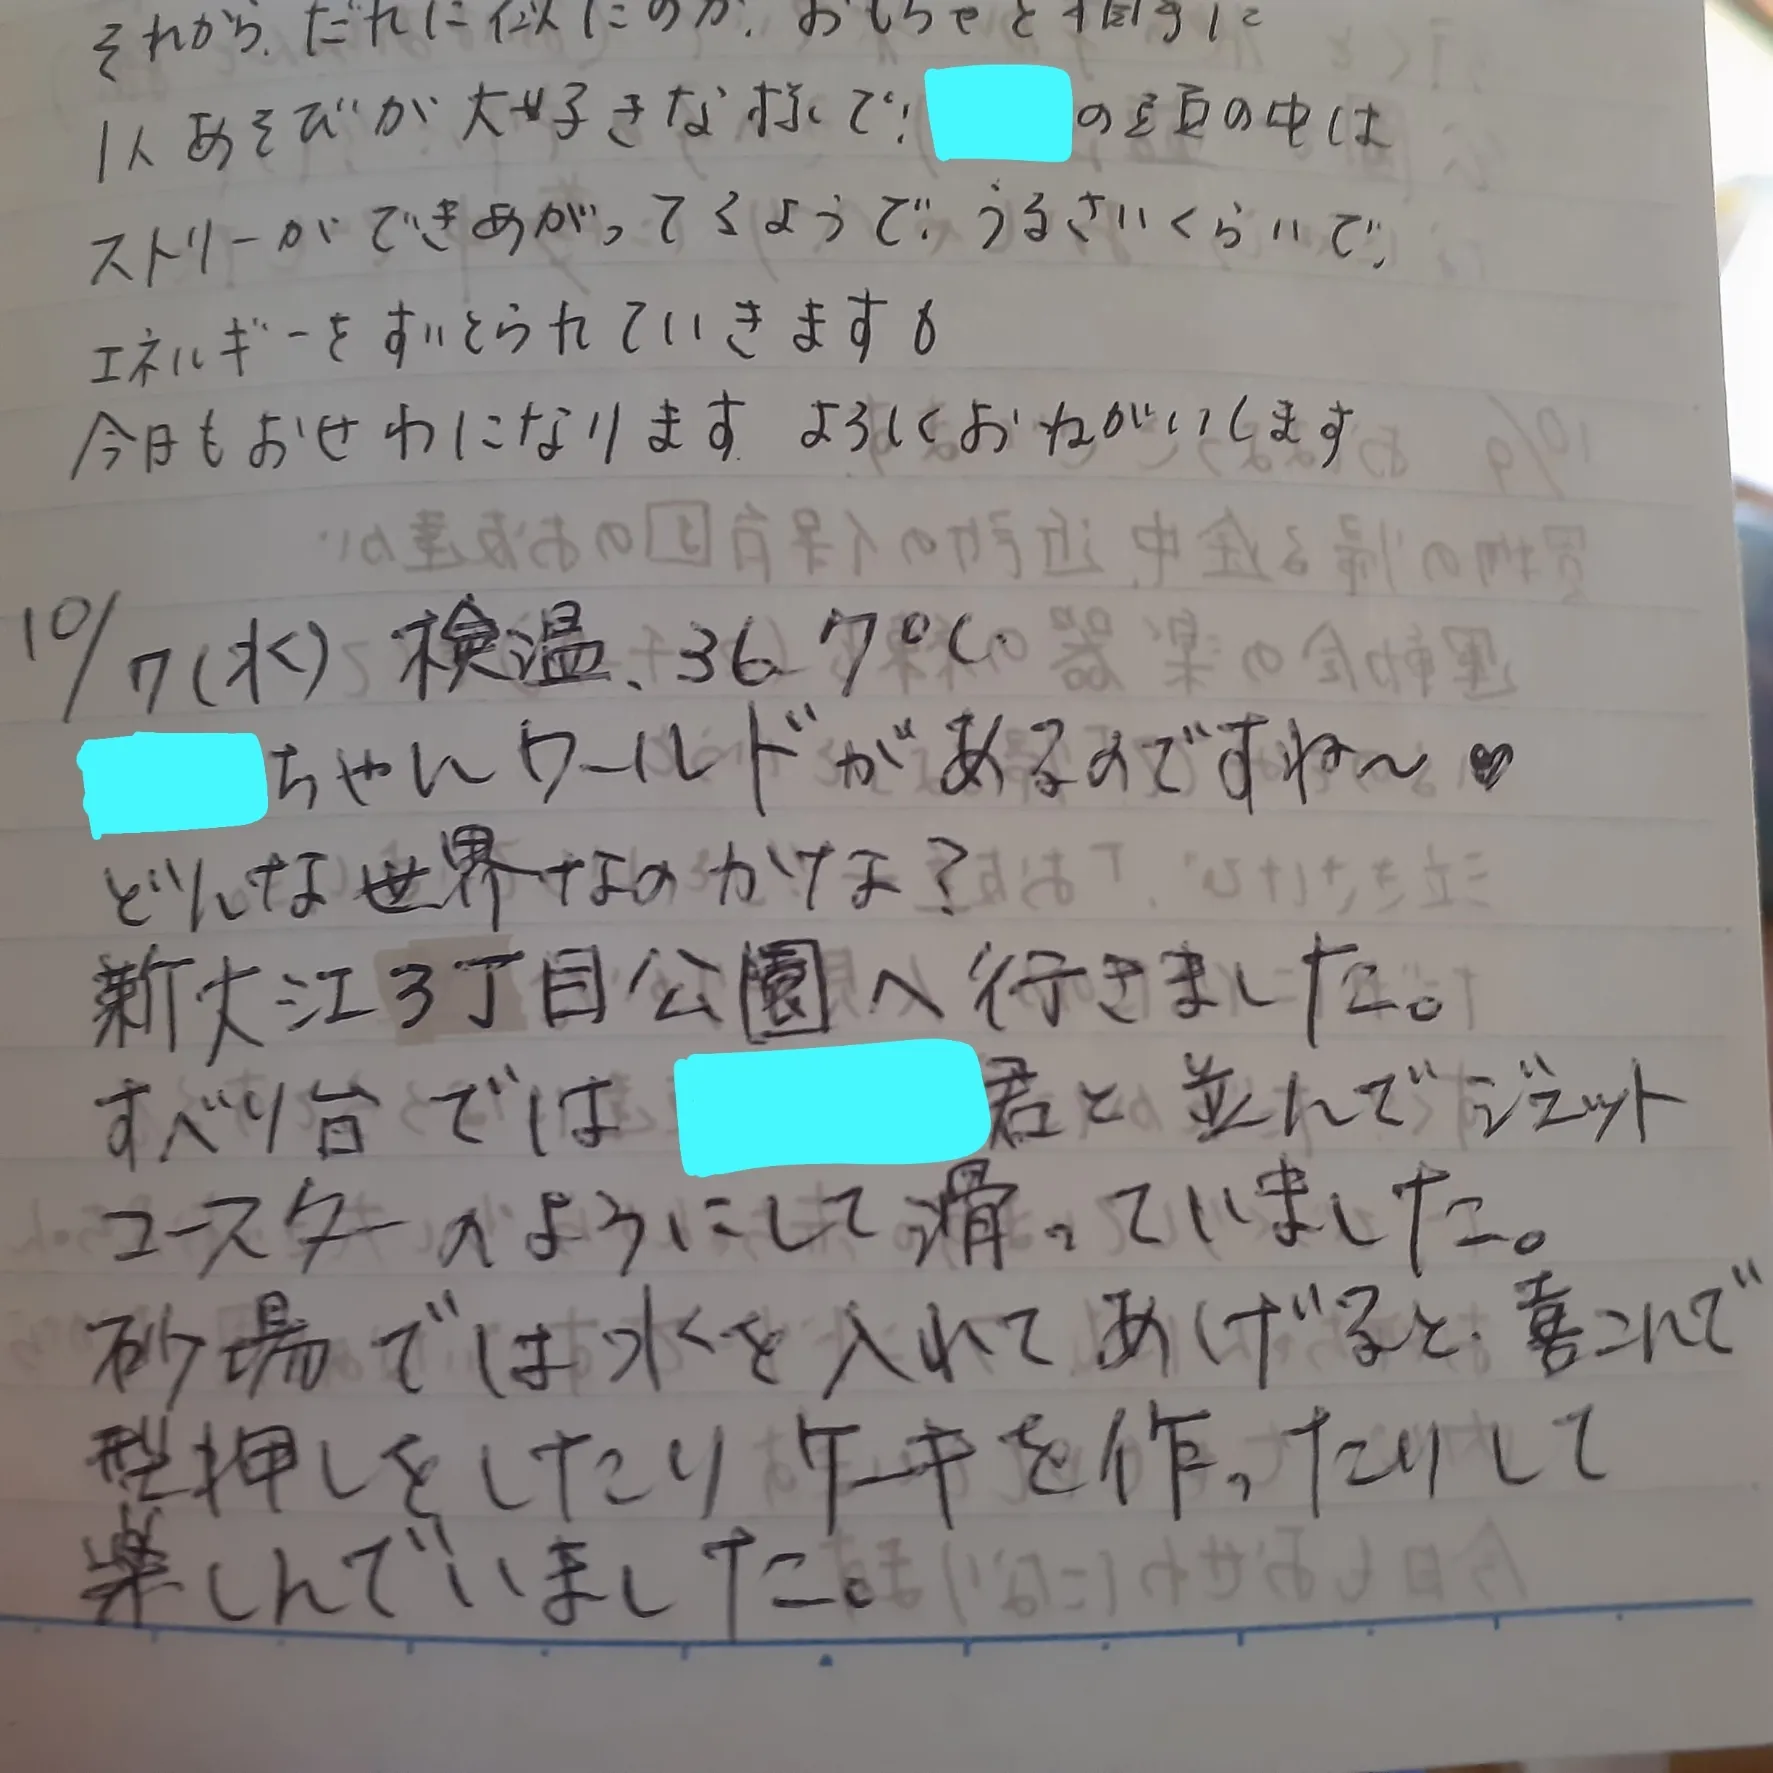 それから、だれに似たのか、おもちゃと
1人あそびが大好きな様で、の頭の中は
ストリーができあがってるようで、うるさいくらいで、
エネルギーをすいとられていきます
今日もおせわになります よろしくおねがいします
10/7(水) 検温、36.7℃
ちゃんワールドがあるのですね〜♥
どんな世界なのかな?
新大江3丁目公園へ行きました。
すべり台では君と並んでジェット
コースターのようにして滑っていました。
砂場では水を入れてあげると、喜こんで
型押しをしたりケーキを作ったりして
楽しんでいました。